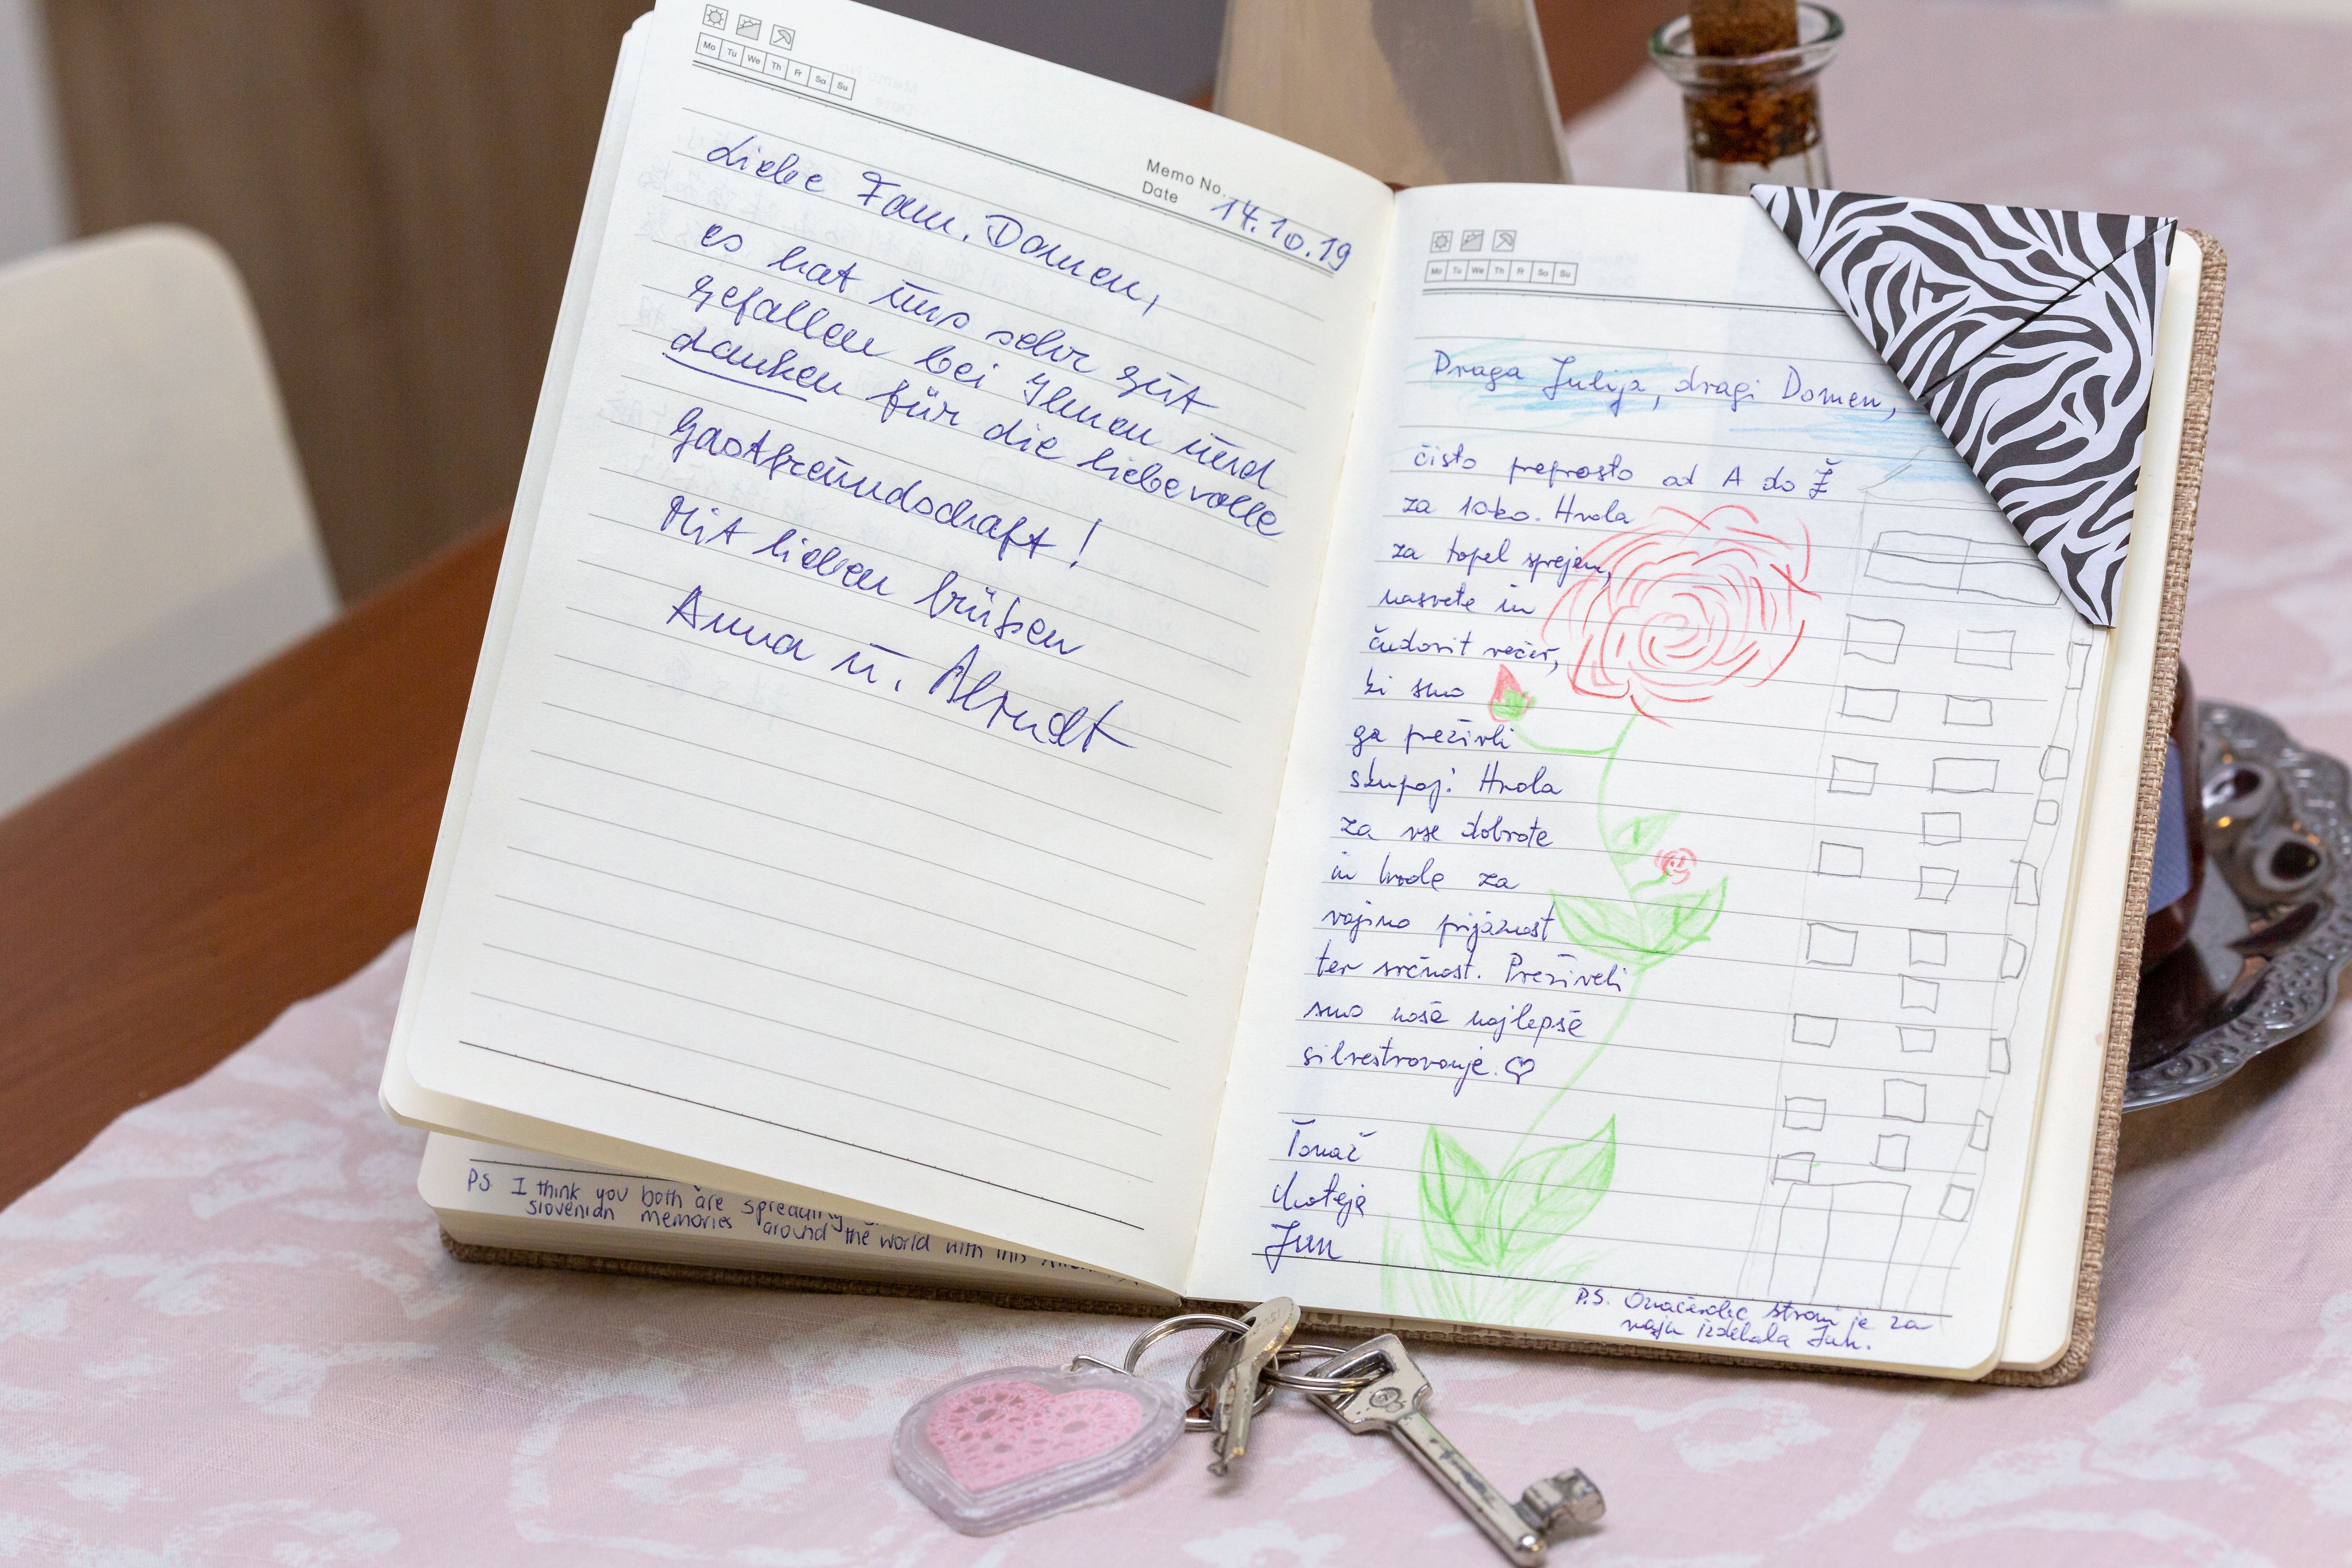 Mo Tu We Th Fr Sa Su
Memo No.
Date 14.10.19
Liebe Fam. Domen,
es hat uns sehr gut
gefallen bei Ihnen und
danken für die liebevolle
Gastfreundschaft!
Mit lieben Grüßen
Anna u.
PS I think you both are spreading
slovenian memories around the world with this
Mo Tu We Th Fr Sa Su
Draga Julija, dragi Domen,
čisto preprosto od A do Ž
za 10ko. Hvala
za topel sprejem,
nasvete in
čudovit večer,
ki smo
ga preživeli
skupaj! Hvala
za vse dobrote
in hvala za
vajino prijaznost
ter srčnost. Preživeli
smo naše najlepše
silvestrovanje. ♡
Tomaž
Mateja
P.S. stran je za
vaju izdelala